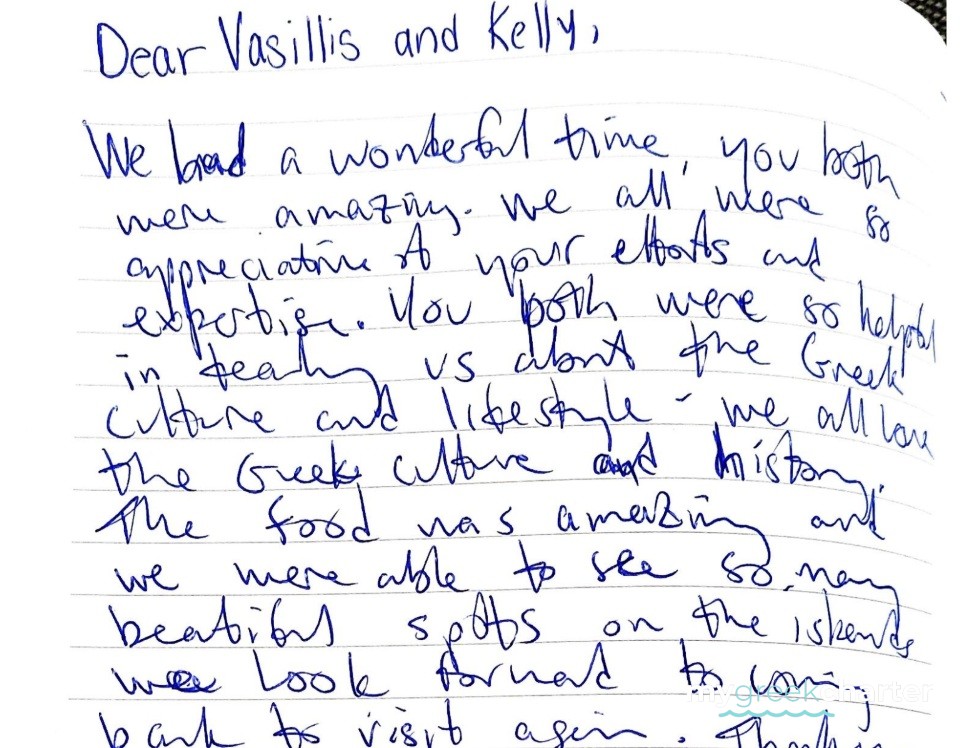 Dear Vasillis and Kelly,
We had a wonderful time, you both
were amazing. We all were so
appreciative of your efforts and
expertise. You both were so helpful
in teaching us about the Greek
culture and lifestyle - we all love
the Greek culture and history.
The food was amazing and
we were able to see so many
beatiful spots on the islands
we look forward to coming
back to visit again.
mygreekcharter